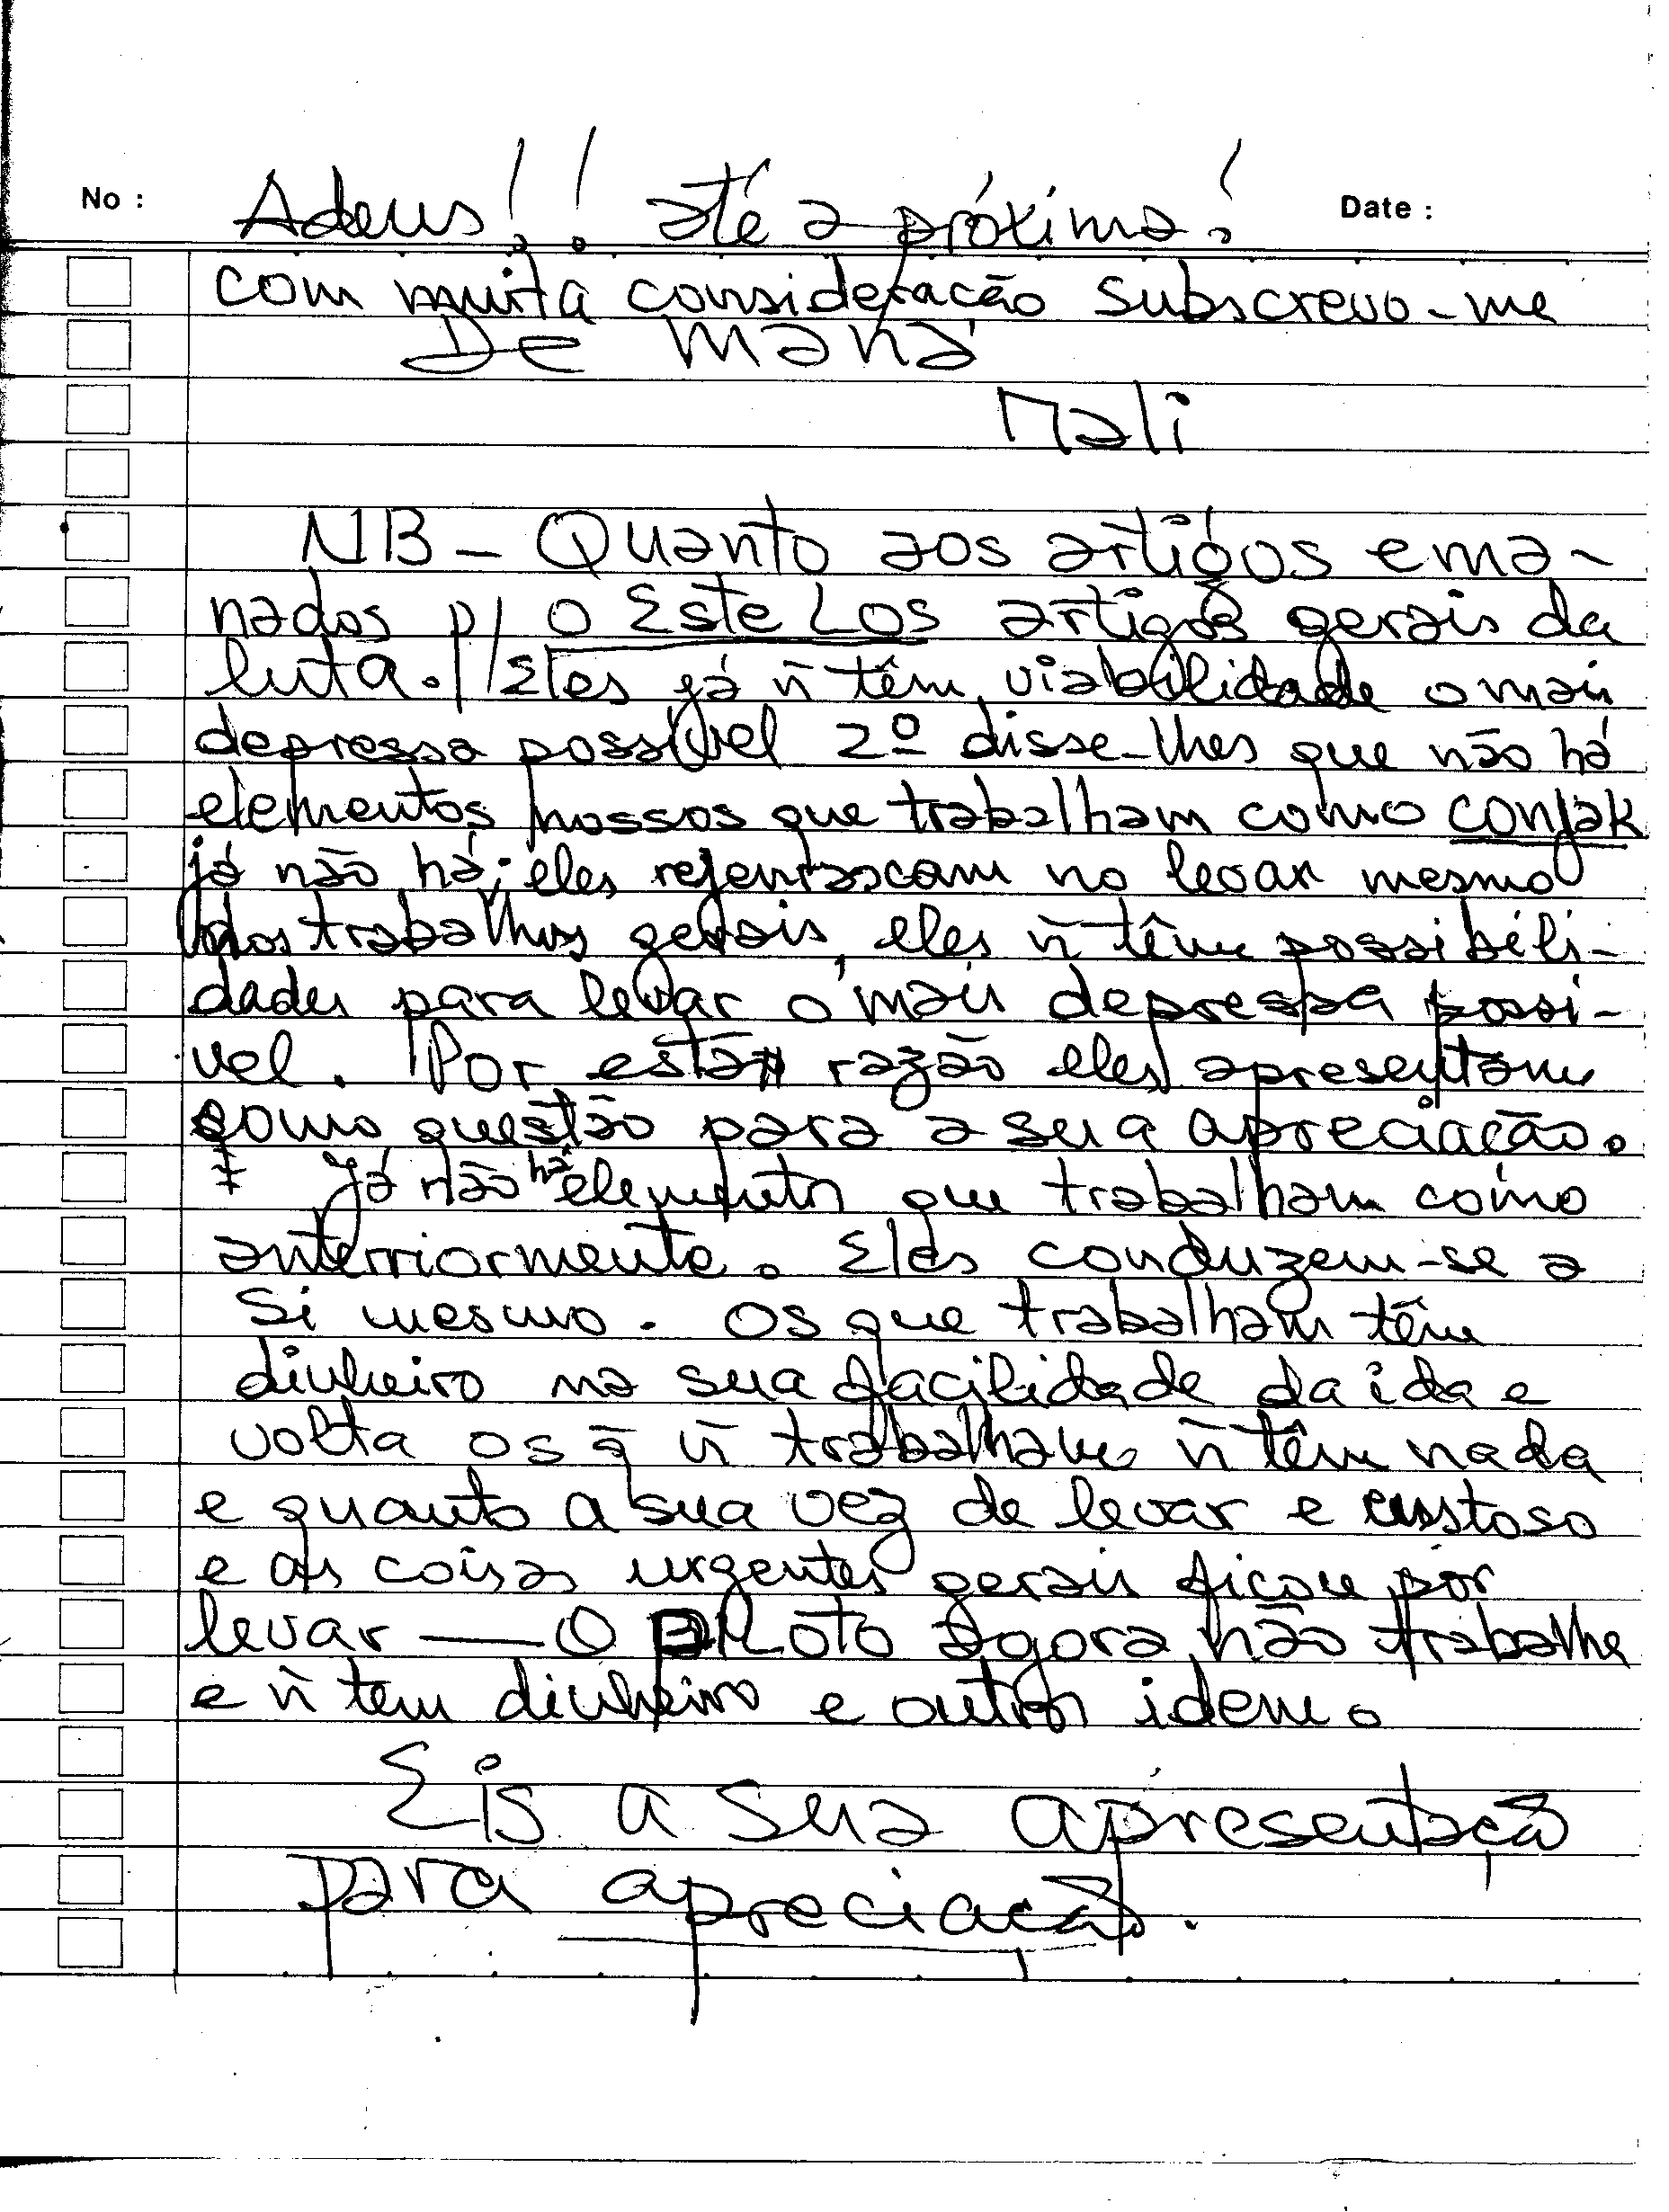 No : Adeus!! até a próxima! Date :
com muita consideração subscrevo-me
De maná
Mali
NB - Quanto aos artigos ema-
nados p/ o Este Los artigos gerais da
luta. Eles já ñ têm viabilidade o mais
depressa possível 2º disse-lhes que não há
elementos nossos que trabalham como conjak
já não há; eles no levar mesmo
dos trabalhos gerais eles ñ têm possibili-
dades para levar o mais depressa possi-
vel. Por esta razão eles apresentam
como questão para a sua apreciação.
Já não há elementos que trabalham como
anterriormente. Eles conduzem-se a
si mesmo. Os que trabalham têm
dinheiro na sua facilidade da ida e
volta os q̃ ñ trabalham ñ têm nada
e quanto a sua vez de levar e custoso
e as coisas urgentes gerais ficam por
levar — O PILOTO agora não trabalha
e ñ tem dinheiro e outros idem.
Eis a sua apresentaçã
para apreciaçã.